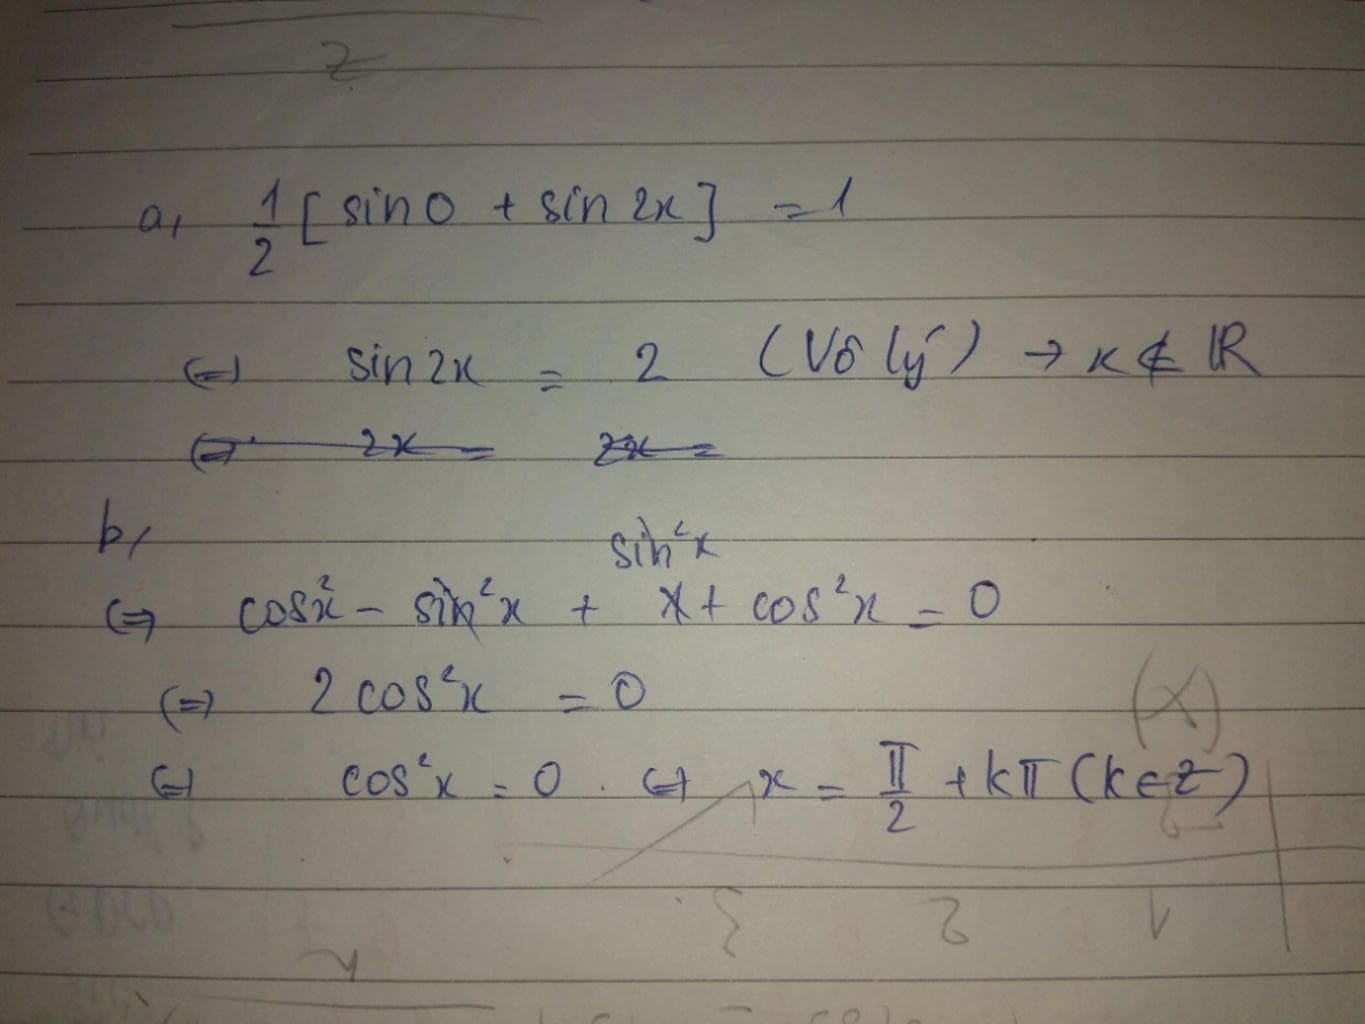 a, 1/2 [sin0 + sin2x] = 1
⇔ sin2x = 2 (Vô lý) → x ∉ ℝ
⇔ 2x = 2x =
b,
sin²x
⇔ cos²x - sin²x + x + cos²x = 0
⇔ 2cos²x = 0
⇔ cos²x = 0. ⇔ x = π/2 + kπ (k∈Z)